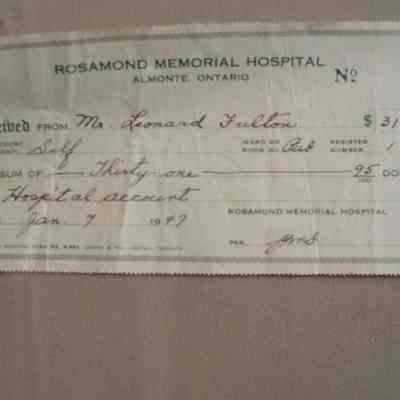 ROSAMOND MEMORIAL HOSPITAL
ALMONTE, ONTARIO
Nº
eived FROM Mr. Leonard Fulton $ 31
Self WARD OR ROOM No. REGISTER NUMBER 1
SUM OF — Thirty-one — 95/100 DO
Hospital account
Jan. 7 1947
ROSAMOND MEMORIAL HOSPITAL
PER